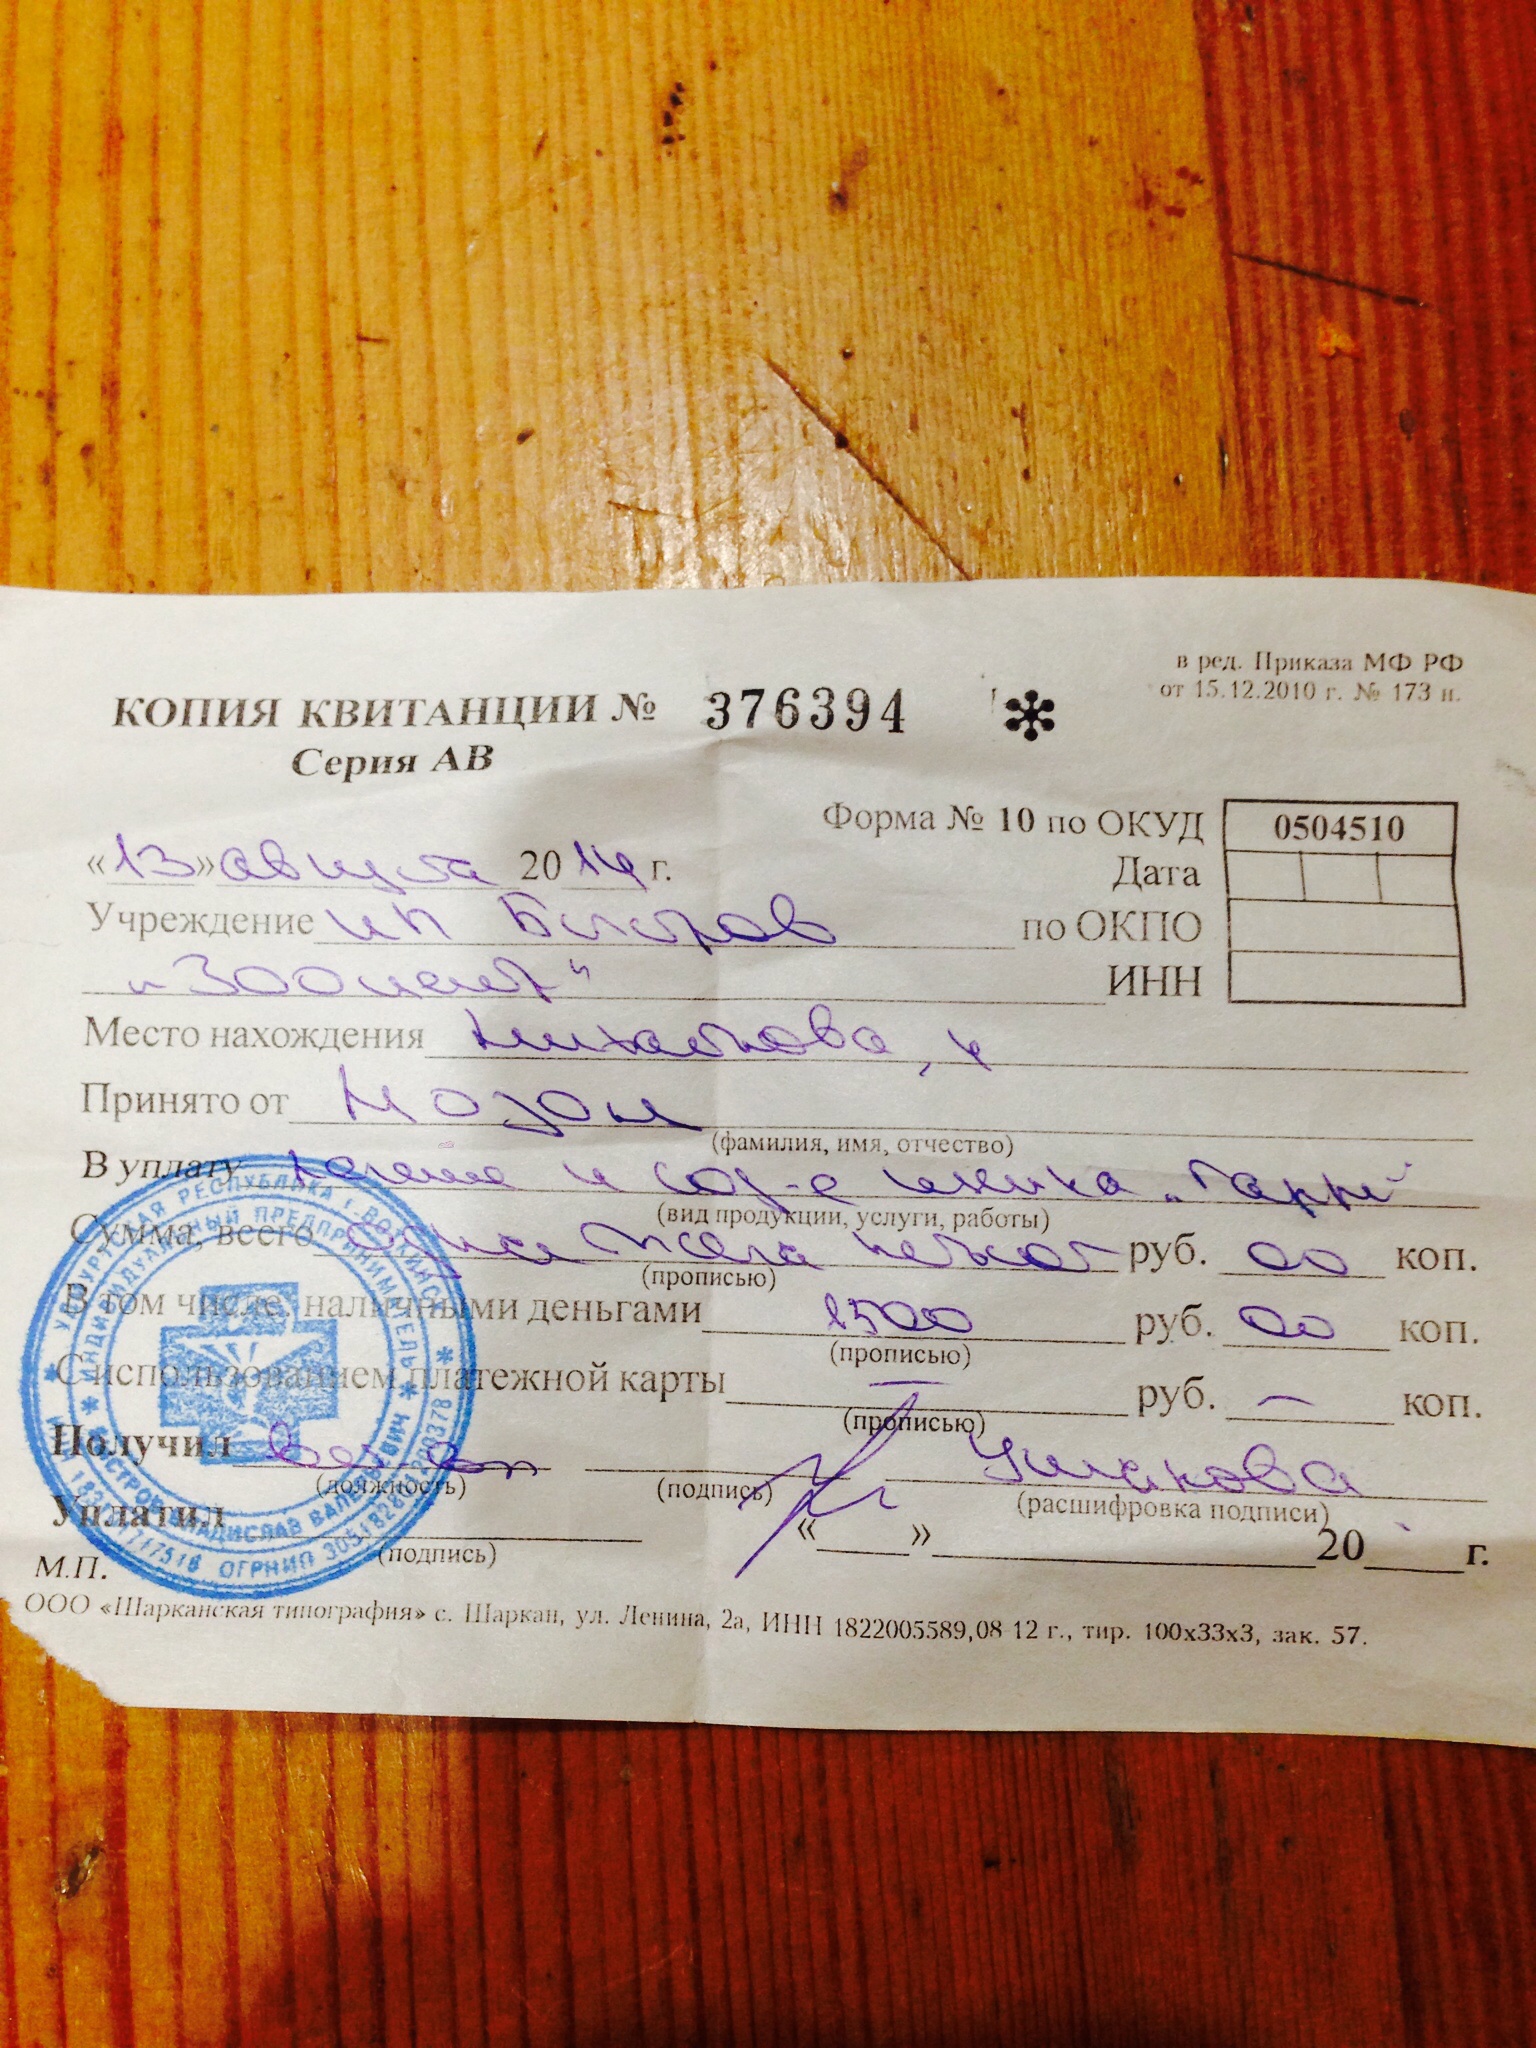 в ред. Приказа МФ РФ
от 15.12.2010 г. № 173 н.
КОПИЯ КВИТАНЦИИ № 376394
Серия АВ
Форма № 10 по ОКУД 0504510
«13» августа 2014 г.
Дата
Учреждение ИП Быстров по ОКПО
"Зооцентр" ИНН
Место нахождения
Принято от
(фамилия, имя, отчество)
В уплату и щенка "Гарри"
(вид продукции, услуги, работы)
Сумма, всего одна тысяча пятьсот руб. 00 коп.
(прописью)
В том числе: наличными деньгами 1500 руб. 00 коп.
(прописью)
С использованием платежной карты — руб. — коп.
(прописью)
Получил Ушакова
(должность) (подпись) (расшифровка подписи)
Уплатил « » 20 г.
(подпись)
М.П.
ООО «Шарканская типография» с. Шаркан, ул. Ленина, 2а, ИНН 1822005589,08 12 г., тир. 100х33х3, зак. 57.
УДМУРТСКАЯ РЕСПУБЛИКА г.ВОТКИНСК
ИНДИВИДУАЛЬНЫЙ ПРЕДПРИНИМАТЕЛЬ
ВЛАДИСЛАВ ВАЛЕРЬЕВИЧ
ОГРНИП